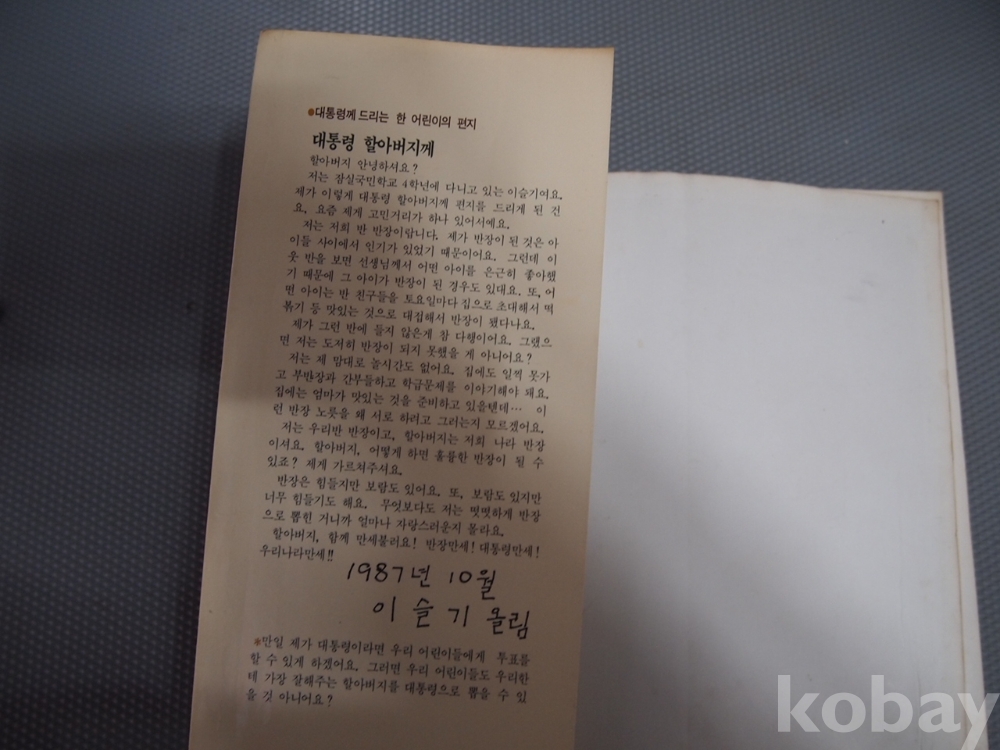 ●대통령께 드리는 한 어린이의 편지
대통령 할아버지께
할아버지 안녕하셔요?
저는 잠실국민학교 4학년에 다니고 있는 이슬기여요.
제가 이렇게 대통령 할아버지께 편지를 드리게 된 건
요, 요즘 제게 고민거리가 하나 있어서예요.
저는 저희 반 반장이랍니다. 제가 반장이 된 것은 아
이들 사이에서 인기가 있었기 때문이어요. 그런데 이
웃 반을 보면 선생님께서 어떤 아이를 은근히 좋아했
기 때문에 그 아이가 반장이 된 경우도 있대요. 또, 어
떤 아이는 반 친구들을 토요일마다 집으로 초대해서 떡
볶기 등 맛있는 것으로 대접해서 반장이 됐다나요.
제가 그런 반에 들지 않은게 참 다행이어요. 그랬으
면 저는 도저히 반장이 되지 못했을 게 아니어요?
저는 제 맘대로 놀시간도 없어요. 집에도 일찍 못가
고 부반장과 간부들하고 학급문제를 이야기해야 돼요.
집에는 엄마가 맛있는 것을 준비하고 있을텐데… 이
런 반장 노릇을 왜 서로 하려고 그러는지 모르겠어요.
저는 우리반 반장이고, 할아버지는 저희 나라 반장
이셔요. 할아버지, 어떻게 하면 훌륭한 반장이 될 수
있죠? 제게 가르쳐주셔요.
반장은 힘들지만 보람도 있어요. 또, 보람도 있지만
너무 힘들기도 해요. 무엇보다도 저는 떳떳하게 반장
으로 뽑힌 거니까 얼마나 자랑스러운지 몰라요.
할아버지, 함께 만세불러요! 반장만세! 대통령만세!
우리나라만세!!
1987년 10월
이 슬 기 올림
*만일 제가 대통령이라면 우리 어린이들에게 투표를
할 수 있게 하겠어요. 그러면 우리 어린이들도 우리한
테 가장 잘해주는 할아버지를 대통령으로 뽑을 수 있
을 것 아니어요?
kobay